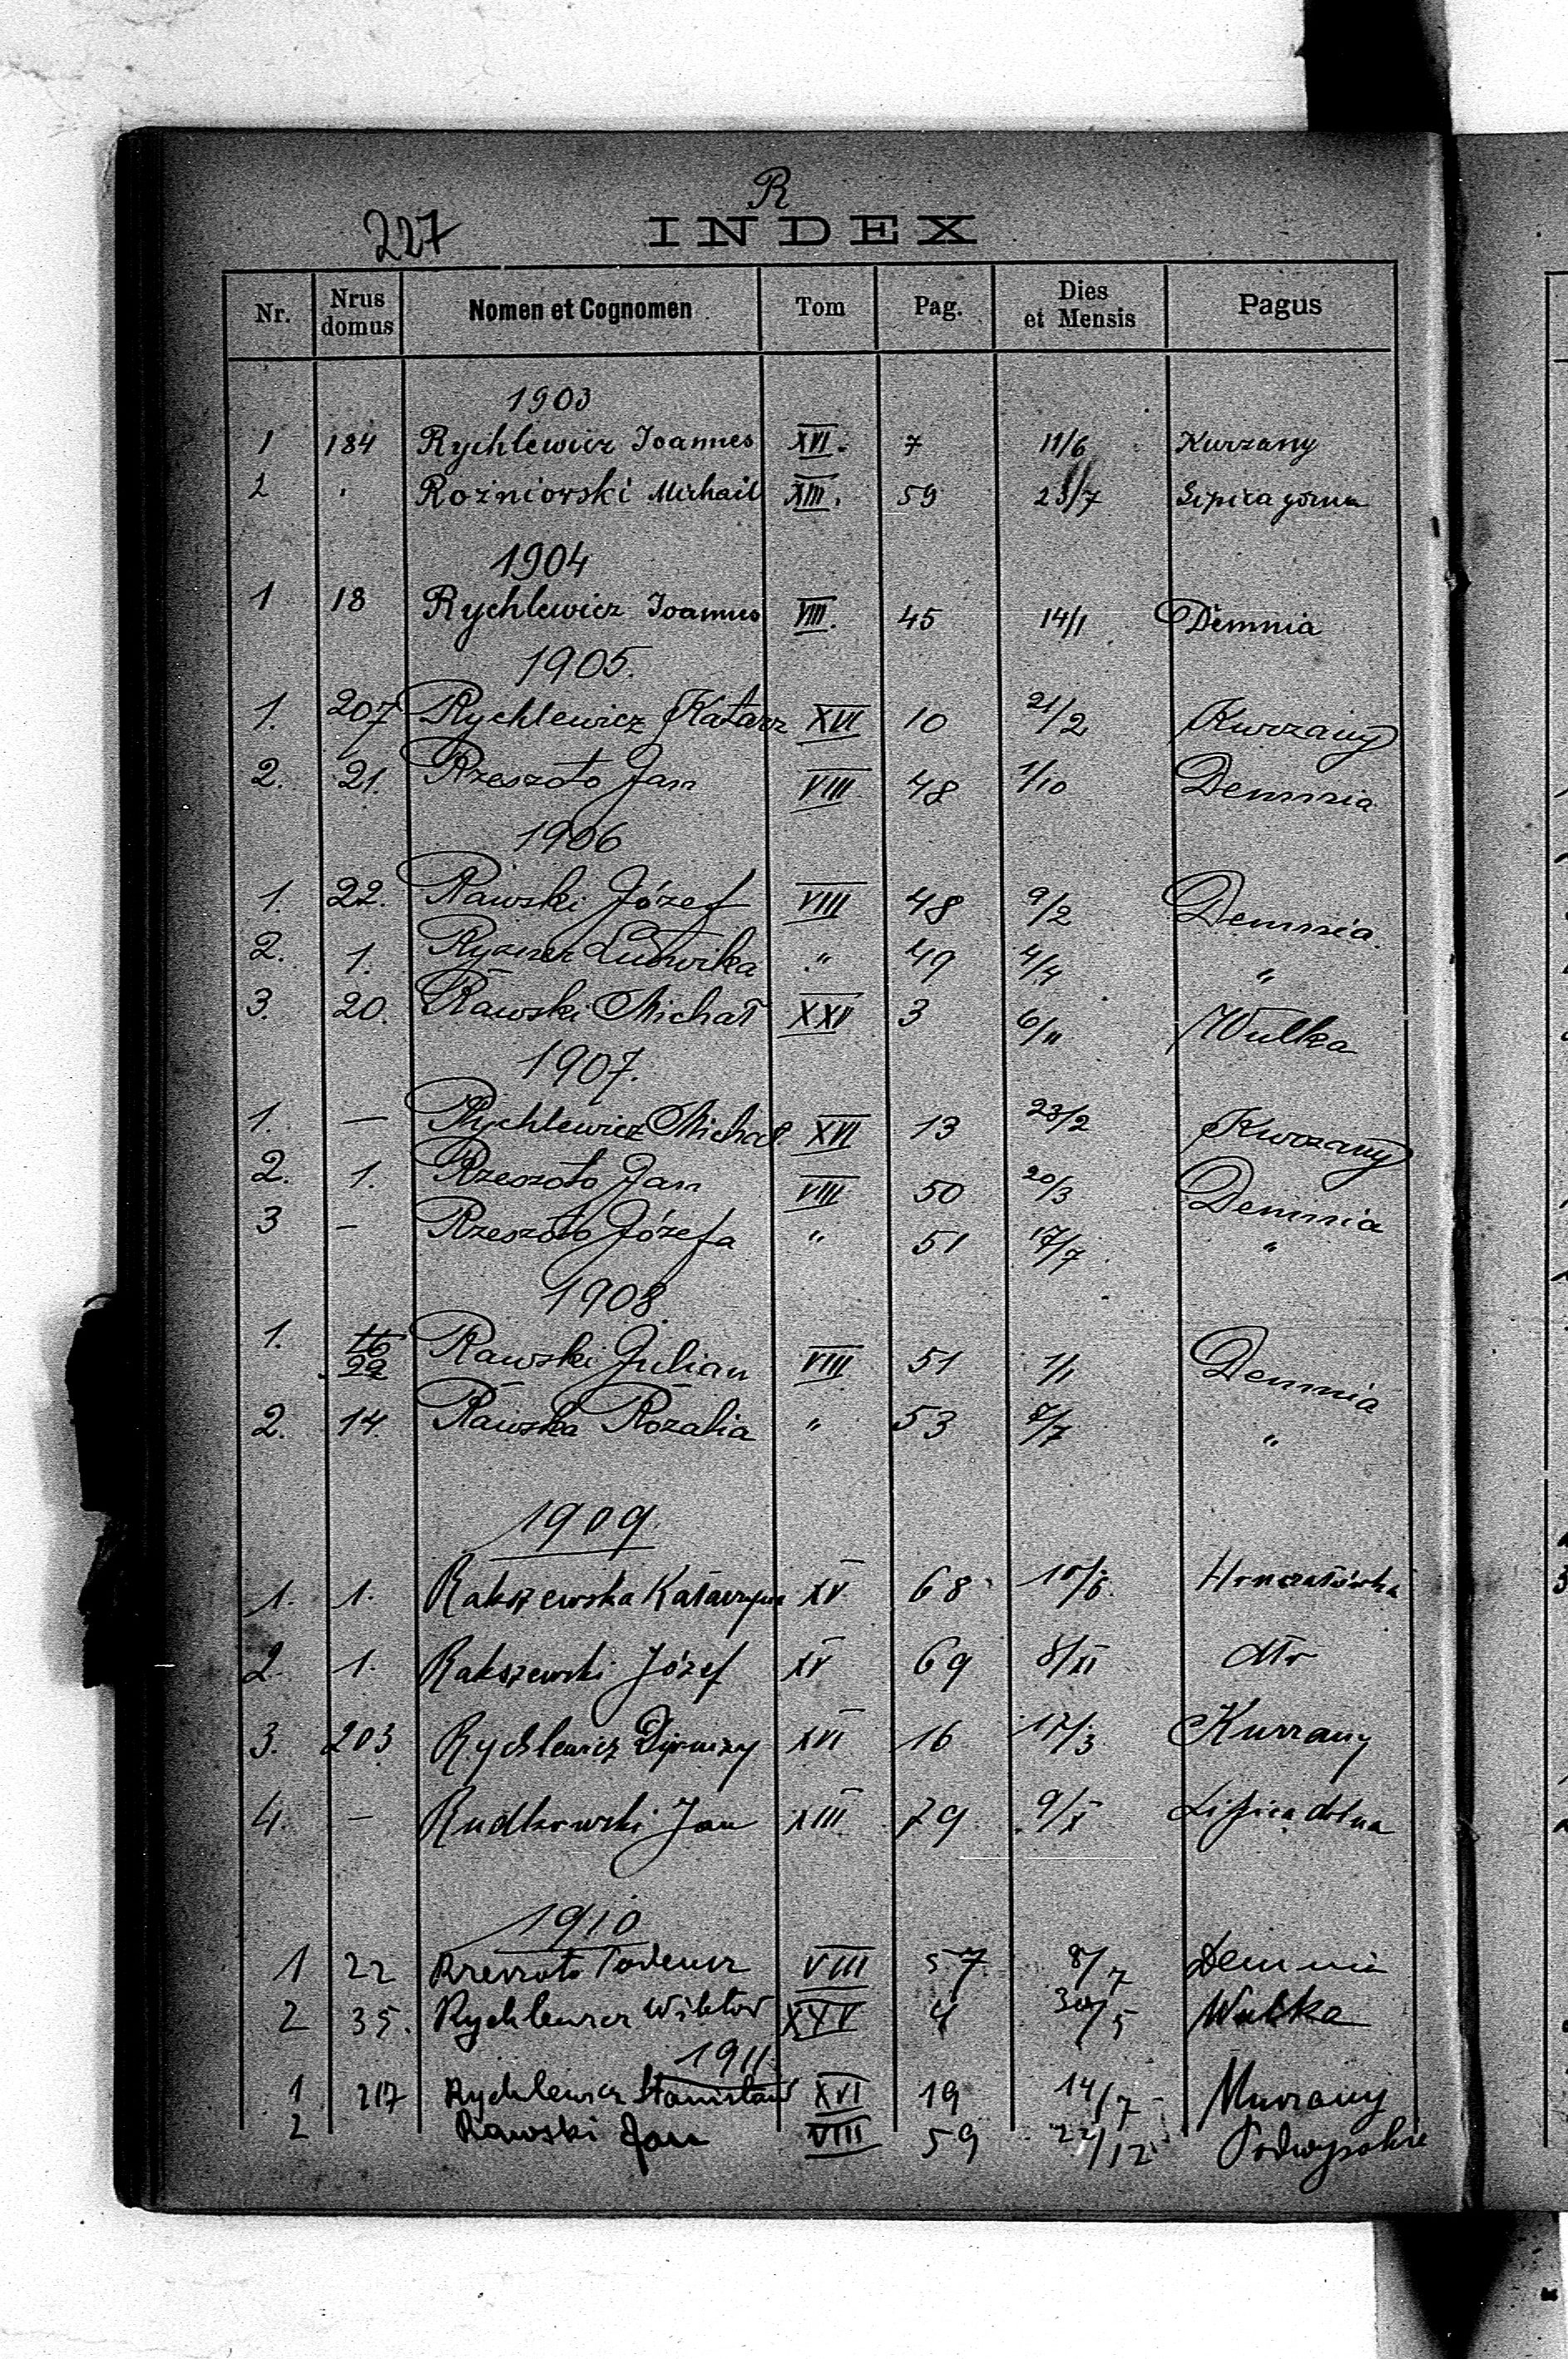 R
227 INDEX
Nr. Nrus domus Nomen et Cognomen Tom Pag. Dies et Mensis Pagus
1903
1 184 Rychlewicz Joannes XVI. 7 11/6 Kurzany
2 Rożniowski Michail XIII. 59 23/7 Lipica górna
1904
1 18 Rychlewicz Joannes VIII. 45 14/1 Demnia
1905.
1. 207 Rychlewicz Katarz XVI 10 21/2 Kurzany
2. 21. Rzeszoto Jan VIII 48 1/10 Demnia
1906
1. 22. Rawski Józef VIII 48 9/2 Demnia.
2. 1. Ludwika " 49 4/4 "
3. 20. Rawski Michał XXV 3 6/11 Wulka
1907.
1. — Rychlewicz Michał XVI 13 23/2 Kurzany
2. 1. Rzeszoto Jan VIII 50 20/3 Demnia
3 — Rzeszoto Józefa " 51 17/7 "
1908
1. 22 Rawski Julian VIII 51 1/1 Demnia
2. 14. Rawska Rozalia " 53 7/7 "
1909.
1. 1. Rakszewska Katarzyna XV 68 Hrnczatówka
2. 1. Rakszewski Józef XV 69 8/XI dtto
3. 203 Rychlewicz XVI 16 17/3 Kurzany
4. — Rudkowski Jan XIII 79 9/X Lipica dolna
1910
1 22 Rzeszoto Tadeusz VIII 57 8/7 Demnia
2 35. Rychlewicz Wiktor XXV 4 30/5 Wulka
1911
1 217 Rychlewicz Stanisław XVI 19 14/7 Kurzany
2 Rawski Jan VIII 59 22/12 Podwysokie